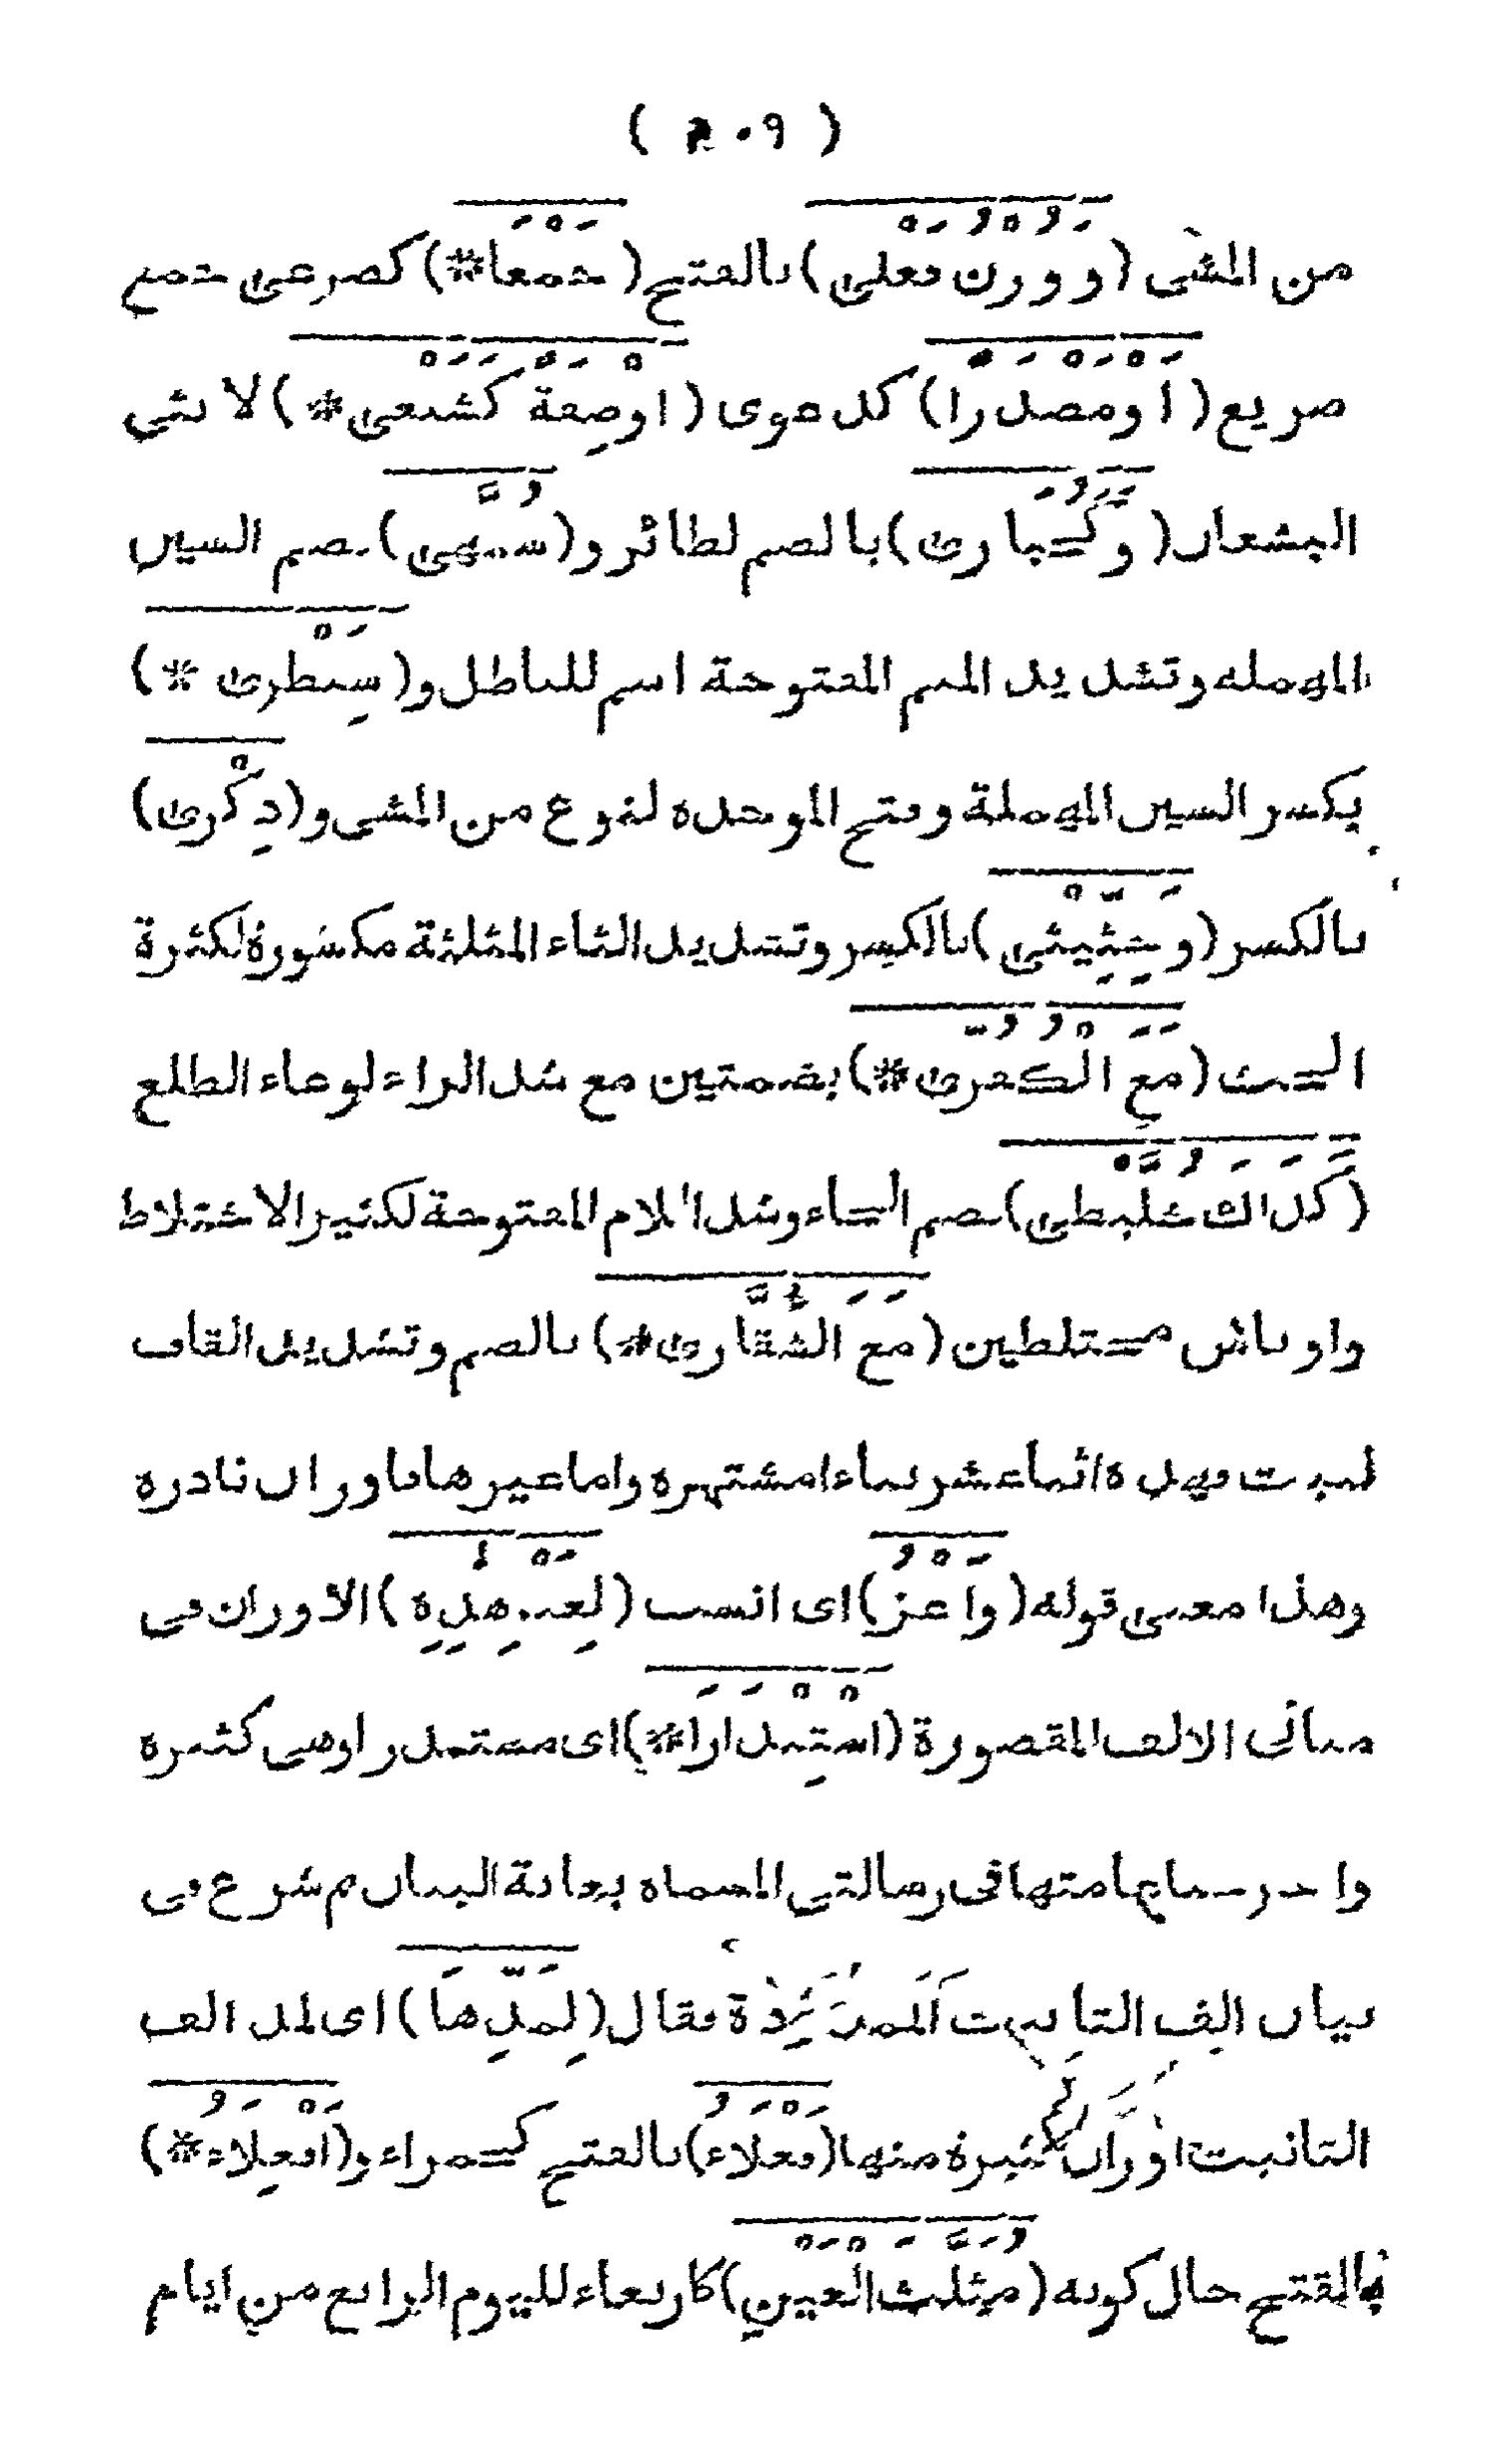 ( ٤٠٩ )
من المشى (وَوُزْنُ فَعْلى) بالفتح (جَمْعًا*) كصرعى جمع
صريع (أَوْمَصْدَرًا) كدعوى (اوْصِفَةً كَشَبْعَى*) لانثى
الشبعان (وَكَحُبَارى) بالضم لطائر و(سُمَّهى) بضم السين
المهمله وتشديد الميم المفتوحة اسم للباطل و(سِبَطْرى *)
بكسر السين المهملة وفتح الموحده لنوع من المشى و(ذِكْرى)
بالكسر (وَحِثِّيْثى) بالكسر وتشديد الثاء المثلثة مكسورة لكثرة
الحث (مَعِ الْكُفُرّى*) بضمتين مع شد الراء لوعاء الطلع
(كَذَاكَ خُلَّيْطى) بضم الخاء وشد اللام المفتوحة لكثير الاختلاط
واوباش مختلطين (مَعَ الشُّقَّارى*) بالضم وتشديد القاف
لنبت فهذه اثنا عشر بناء امشتهره واما غيرها فاوزان نادره
وهذا معنى قوله (وَاعْزُ) اى انسب (لِغَيْرِ هٰذِهِ) الاوزان فى
مبانى الالف المقصورة (اسْتِنْدَارَا*) اى مستندرا وهى كثيره
فى رسالتى المسماه البيان ثم شرع فى
بيان الف التأنيث الممدودة فقال (لِمَدِّهَا) اى لمد الف
التانيث اوزان كثيرة منها (فَعْلَاءُ) بالفتح كحمراء و(أَفْعِلَاءُ*)
بالفتح حال كونه (مُثَلَّثَ الْعَيْنِ) كاربعاء لليوم الرابع من ايام